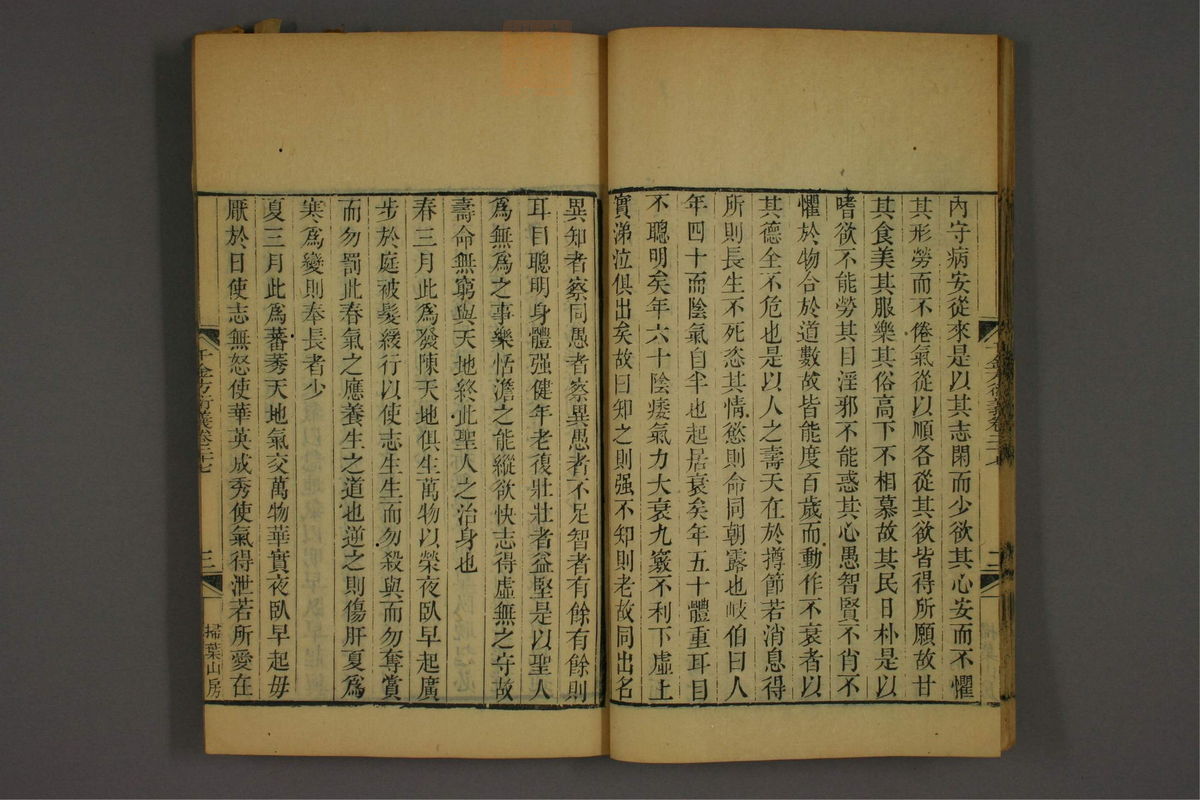 內守病安從來是以其志閑而少欲其心安而不懼
其形勞而不倦氣從以順各從其欲皆得所願故甘
其食美其服樂其俗高下不相慕故其民日朴是以
嗜欲不能勞其目淫邪不能惑其心愚智賢不肖不
懼於物合於道數故皆能度百歲而動作不衰者以
其德全不危也是以人之壽夭在於撙節若消息得
所則長生不死恣其情慾則命同朝露也岐伯曰人
年四十而陰氣自半也起居衰矣年五十體重耳目
不聰明矣年六十陰痿氣力大衰九竅不利下虛上
實涕泣俱出矣故曰知之則强不知則老故同出名
千金方衍義卷二十七
二
異知者察同愚者察異愚者不足智者有餘有餘則
耳目聰明身體强健年老復壯壯者益堅是以聖人
為無為之事樂恬澹之能縱欲快志得虛無之守故
壽命無窮與天地終此聖人之治身也
春三月此為發陳天地俱生萬物以榮夜臥早起廣
步於庭被髮緩行以使志生生而勿殺與而勿奪賞
而勿罰此春氣之應養生之道也逆之則傷肝夏為
寒為變則奉長者少
夏三月此為蕃莠天地氣交萬物華實夜臥早起毋
厭於日使志無怒使華英成秀使氣得泄若所愛在
千金方衍義卷二十七
三
掃葉山房